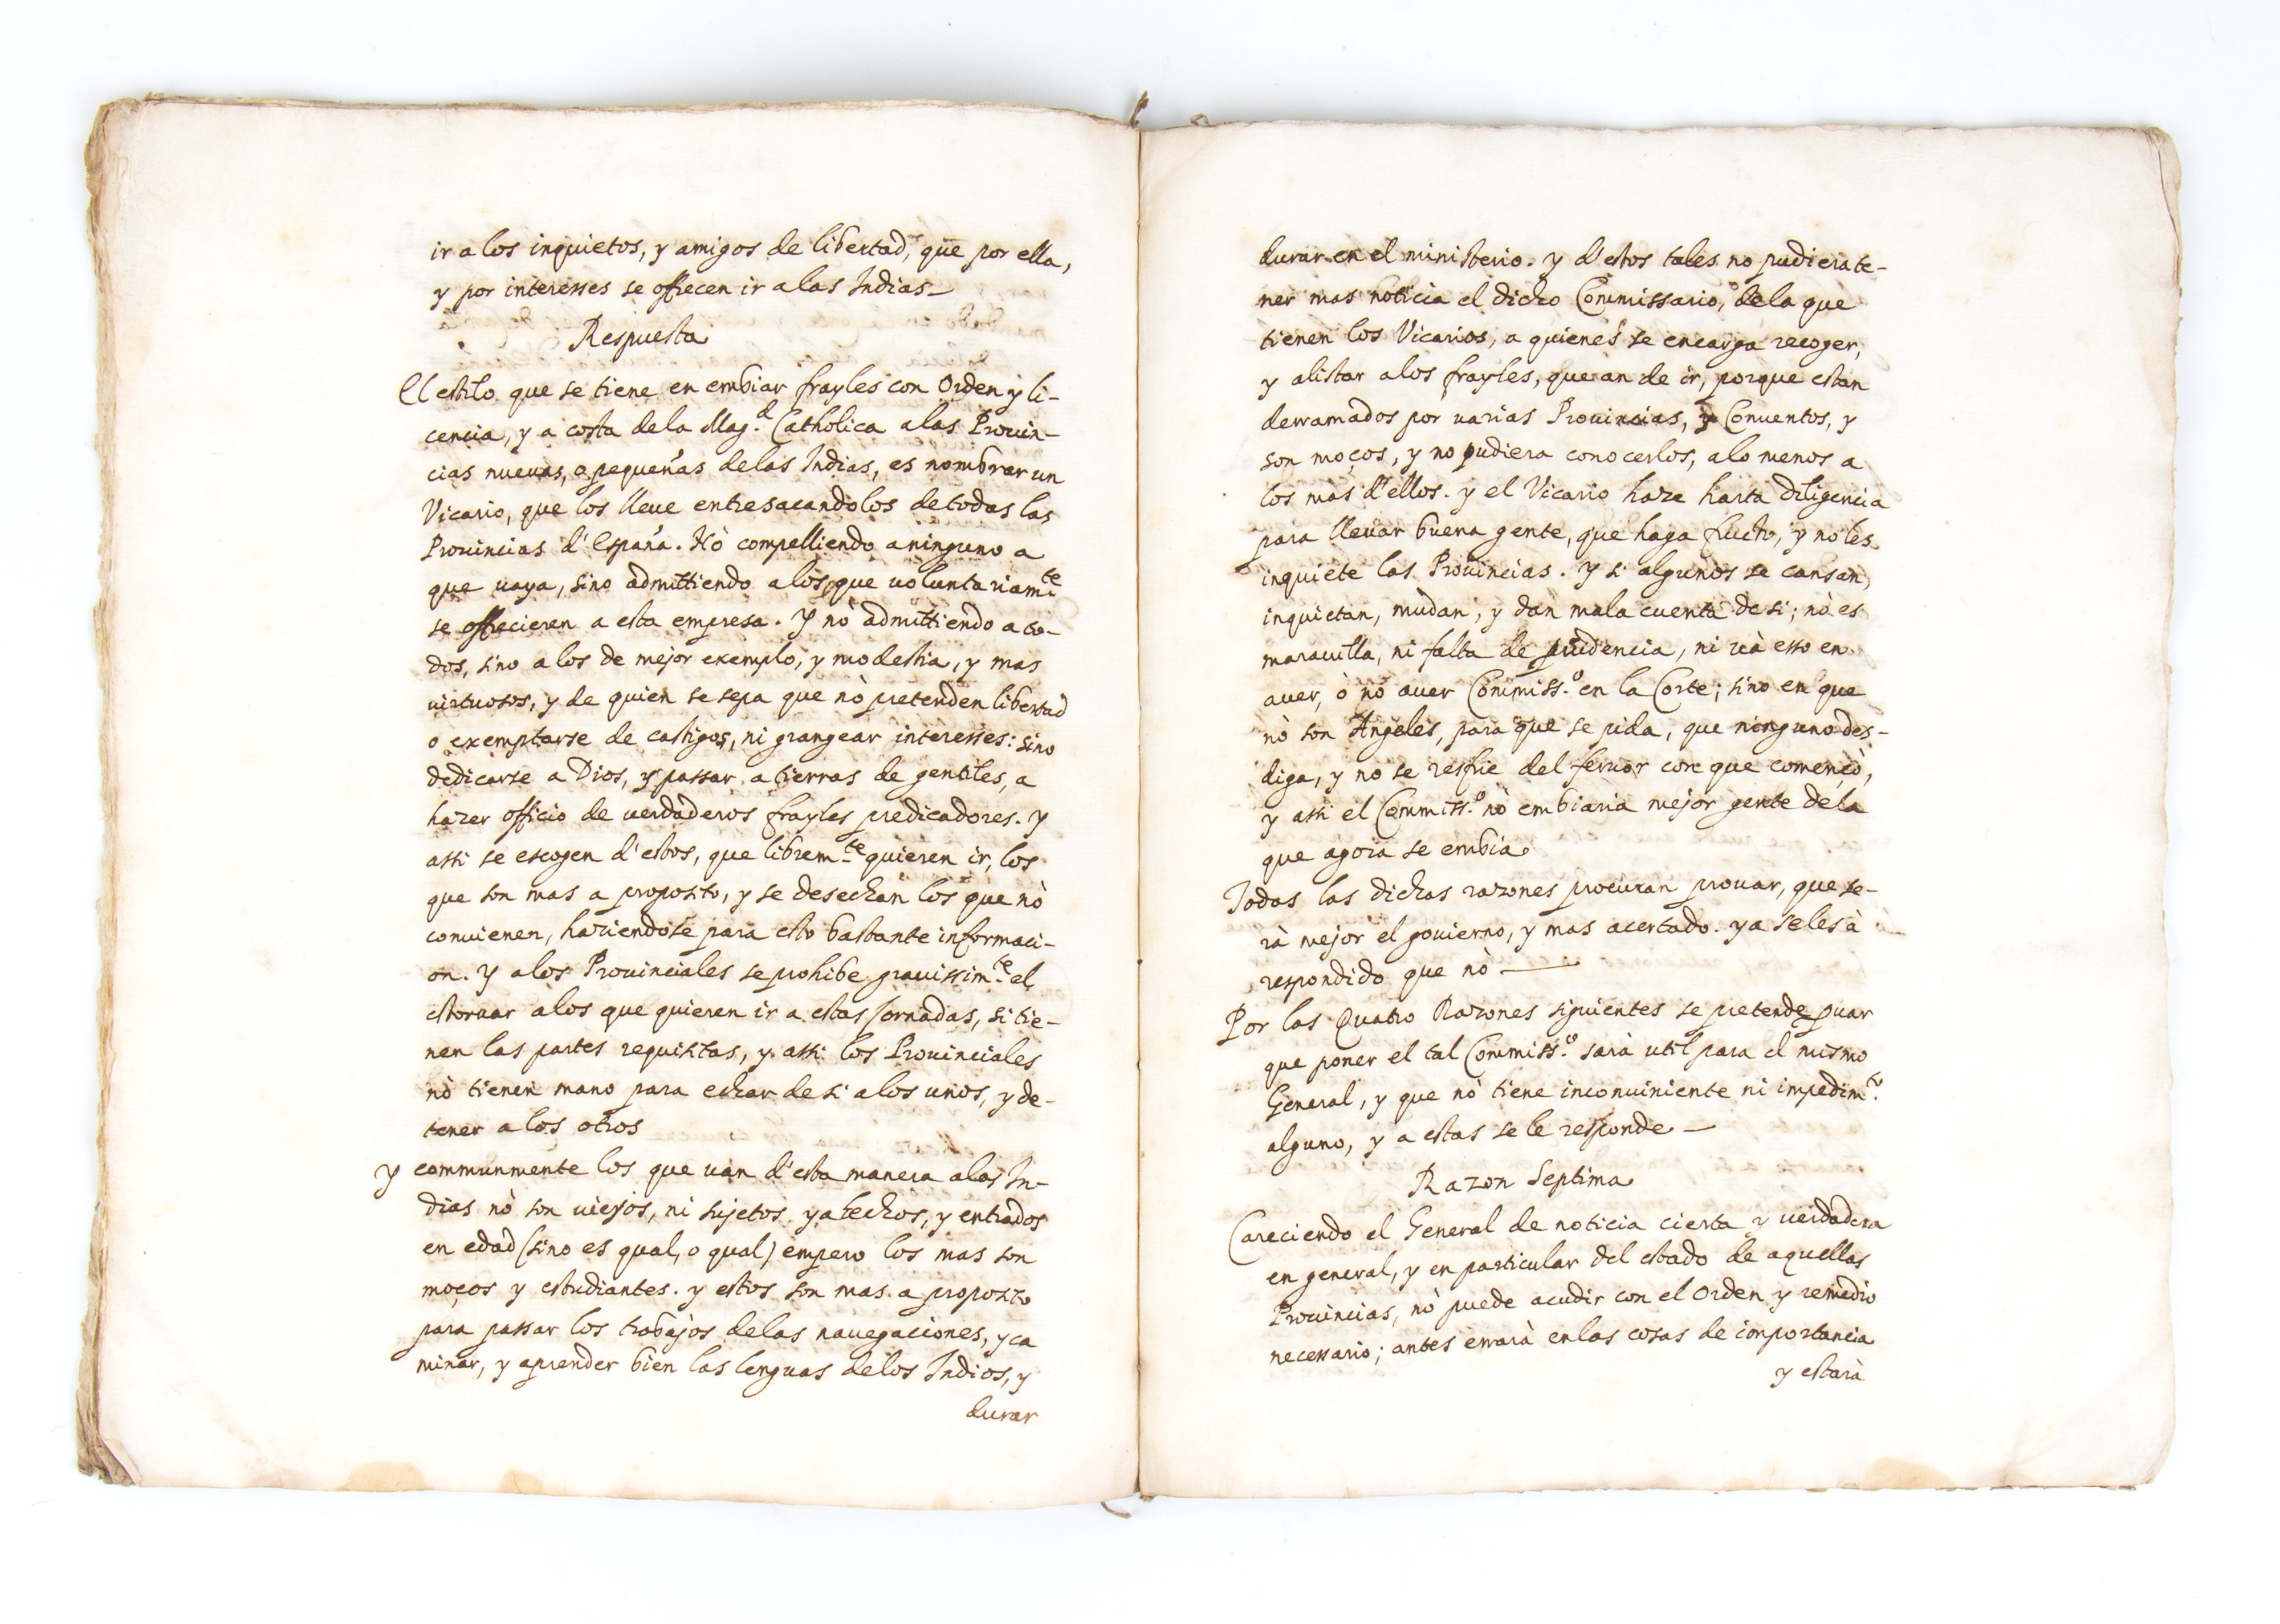 ir a los inquietos, y amigos de libertad, que por ella,
y por interesses se offrecen ir a las Indias
Respuesta
El estilo que se tiene en embiar frayles con Orden y li-
cencia, y a costa dela Mag.d Catholica alas Provin-
cias nuevas, o pequeñas delas Indias, es nombrar un
Vicario, que los lleve entresacandolos de todas las
Provincias d'España. Nò compelliendo a ninguno a
que vaya, sino admittiendo a los que voluntariam.te
se offrecieren a esta empresa. Y nò admittiendo a to-
dos, sino a los de mejor exemplo, y modestia, y mas
virtuosos, y de quien se sepa que nò pretenden libertad
o exemptarse de castigos, ni grangear interesses: sino
dedicarse a Dios, y passar a tierras de gentiles, a
hazer officio de verdaderos frayles predicadores. Y
assi se escogen d'estos, que librem.te quieren ir, los
que son mas a proposito, y se desechan los que nò
convienen, haziendose para esto bastante informaci-
on. Y alos Provinciales se prohibe gravissim.te el
estorvar alos que quieren ir a estas jornadas, si tie-
nen las partes requisitas, y assi los Provinciales
nò tienen mano para echar de si a los unos, y de-
tener a los otros
y communmente los que van d'esta manera alas In-
dias nò son viejos, ni sujetos ya hechos, y entrados
en edad (sino es qual, o qual) empero los mas son
moços y estudiantes. y estos son mas a proposito
para passar los trabajos delas navegaciones, y ca
minar, y aprender bien las lenguas delos Indios, y
durar
durar en el ministerio. y d'estos tales no pudiera te-
ner mas noticia el dicho Commissario, dela que
tienen los Vicarios, a quienes se encarga recoger,
y alistar alos frayles, que an de ir, porque estan
derramados por varias Provincias, y Conventos, y
son moços, y no pudiera conocerlos, alo menos a
los mas d'ellos. y el Vicario haze harta diligencia
para llevar buena gente, que haga fructo, y no les
inquiete las Provincias. Y si algunos se cansan,
inquietan, mudan, y dan mala cuenta de si; nò es
maravilla, ni falta de prudencia, ni và esso en
aver, ò nò aver Commiss.o en la Corte; sino en que
nò son Angeles, para que se pida, que ninguno des-
diga, y no se resfrie del fervor con que començò,
y assi el Commiss.o nò embiaria mejor gente dela
que agora se embia.
Todas las dichas razones procuran provar, que se-
rà mejor el govierno, y mas acertado. ya se les à
respondido que nò
Por las Quatro Razones siguientes se pretende pvar
que poner el tal Commiss.o sarà util para el mismo
General, y que nò tiene inconviniente ni impedim.to
alguno, y a estas se le responde
Razon Septima
Careciendo el General de noticia cierta y verdadera
en general, y en particular del estado de aquellas
Provincias, nò puede acudir con el Orden y remedio
necessario; antes errarà en las cosas de importancia
y estarà